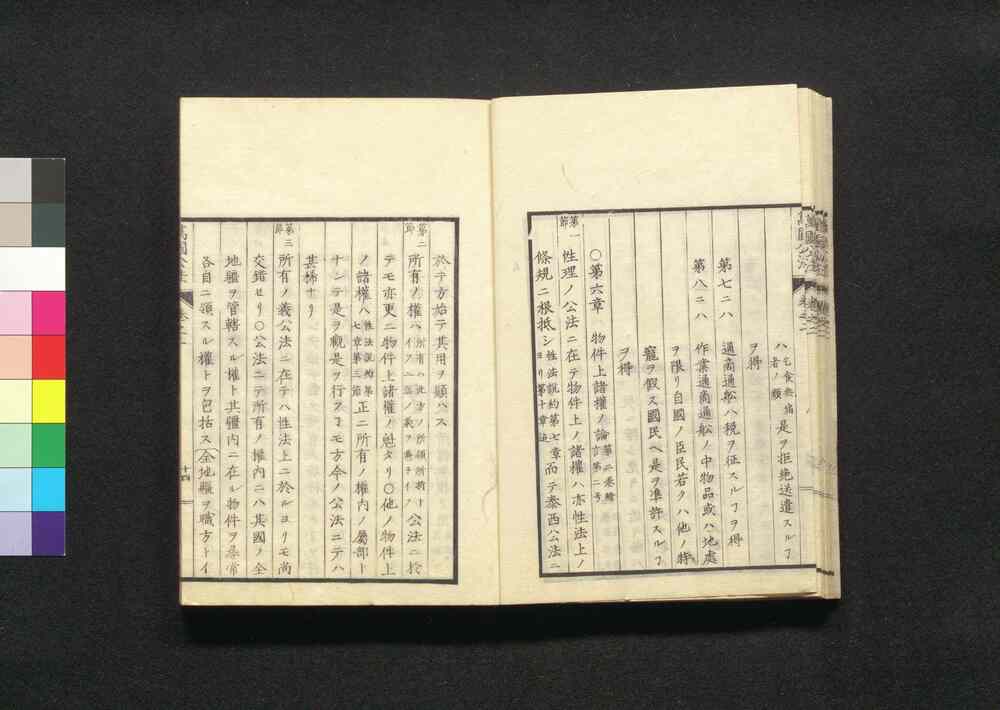 萬國公法 卷之二
ハ乞食無宿者ノ類是ヲ拒絶送遣スルヿ
ヲ得
第七ニハ 通商通船ハ税ヲ征スルヿヲ得
第八ニハ 作業通商通船ノ中物品或ハ地處
ヲ限リ自國ノ臣民若クハ他ノ特
寵ヲ假ス國民ヘ是ヲ準許スルヿ
ヲ得
○第六章 物件上諸權ノ論第二卷緒言第二号
第一節 性理ノ公法ニ在テ物件上ノ諸權ハ亦性法上ノ
條規ニ根抵シ性法説約第七章ヨリ第十章迠而テ泰西公法ニ
於テ方始テ其用ヲ顯ハス
第二節 所有ノ權ハ公法ニ於
テモ亦更ニ物件上諸權ノ魁タリ○他ノ物件上
ノ諸權ハ性法説約第七章第三節正ニ所有ノ權内ノ屬部ト
ナシテ是ヲ觀是ヲ行フヿモ方今ノ公法ニテハ
甚稀ナリ
第三節 所有ノ義公法ニ在テハ性法上ニ於ルヨリモ尚
交錯セリ○公法ニテ所有ノ權内ニハ其國ノ全
地疆ヲ管轄スル權ト其疆内ニ在ル物件ヲ尋常
各自ニ領スル權トヲ包括ス全地疆ヲ職方トイ
萬國公法 卷之二 十四